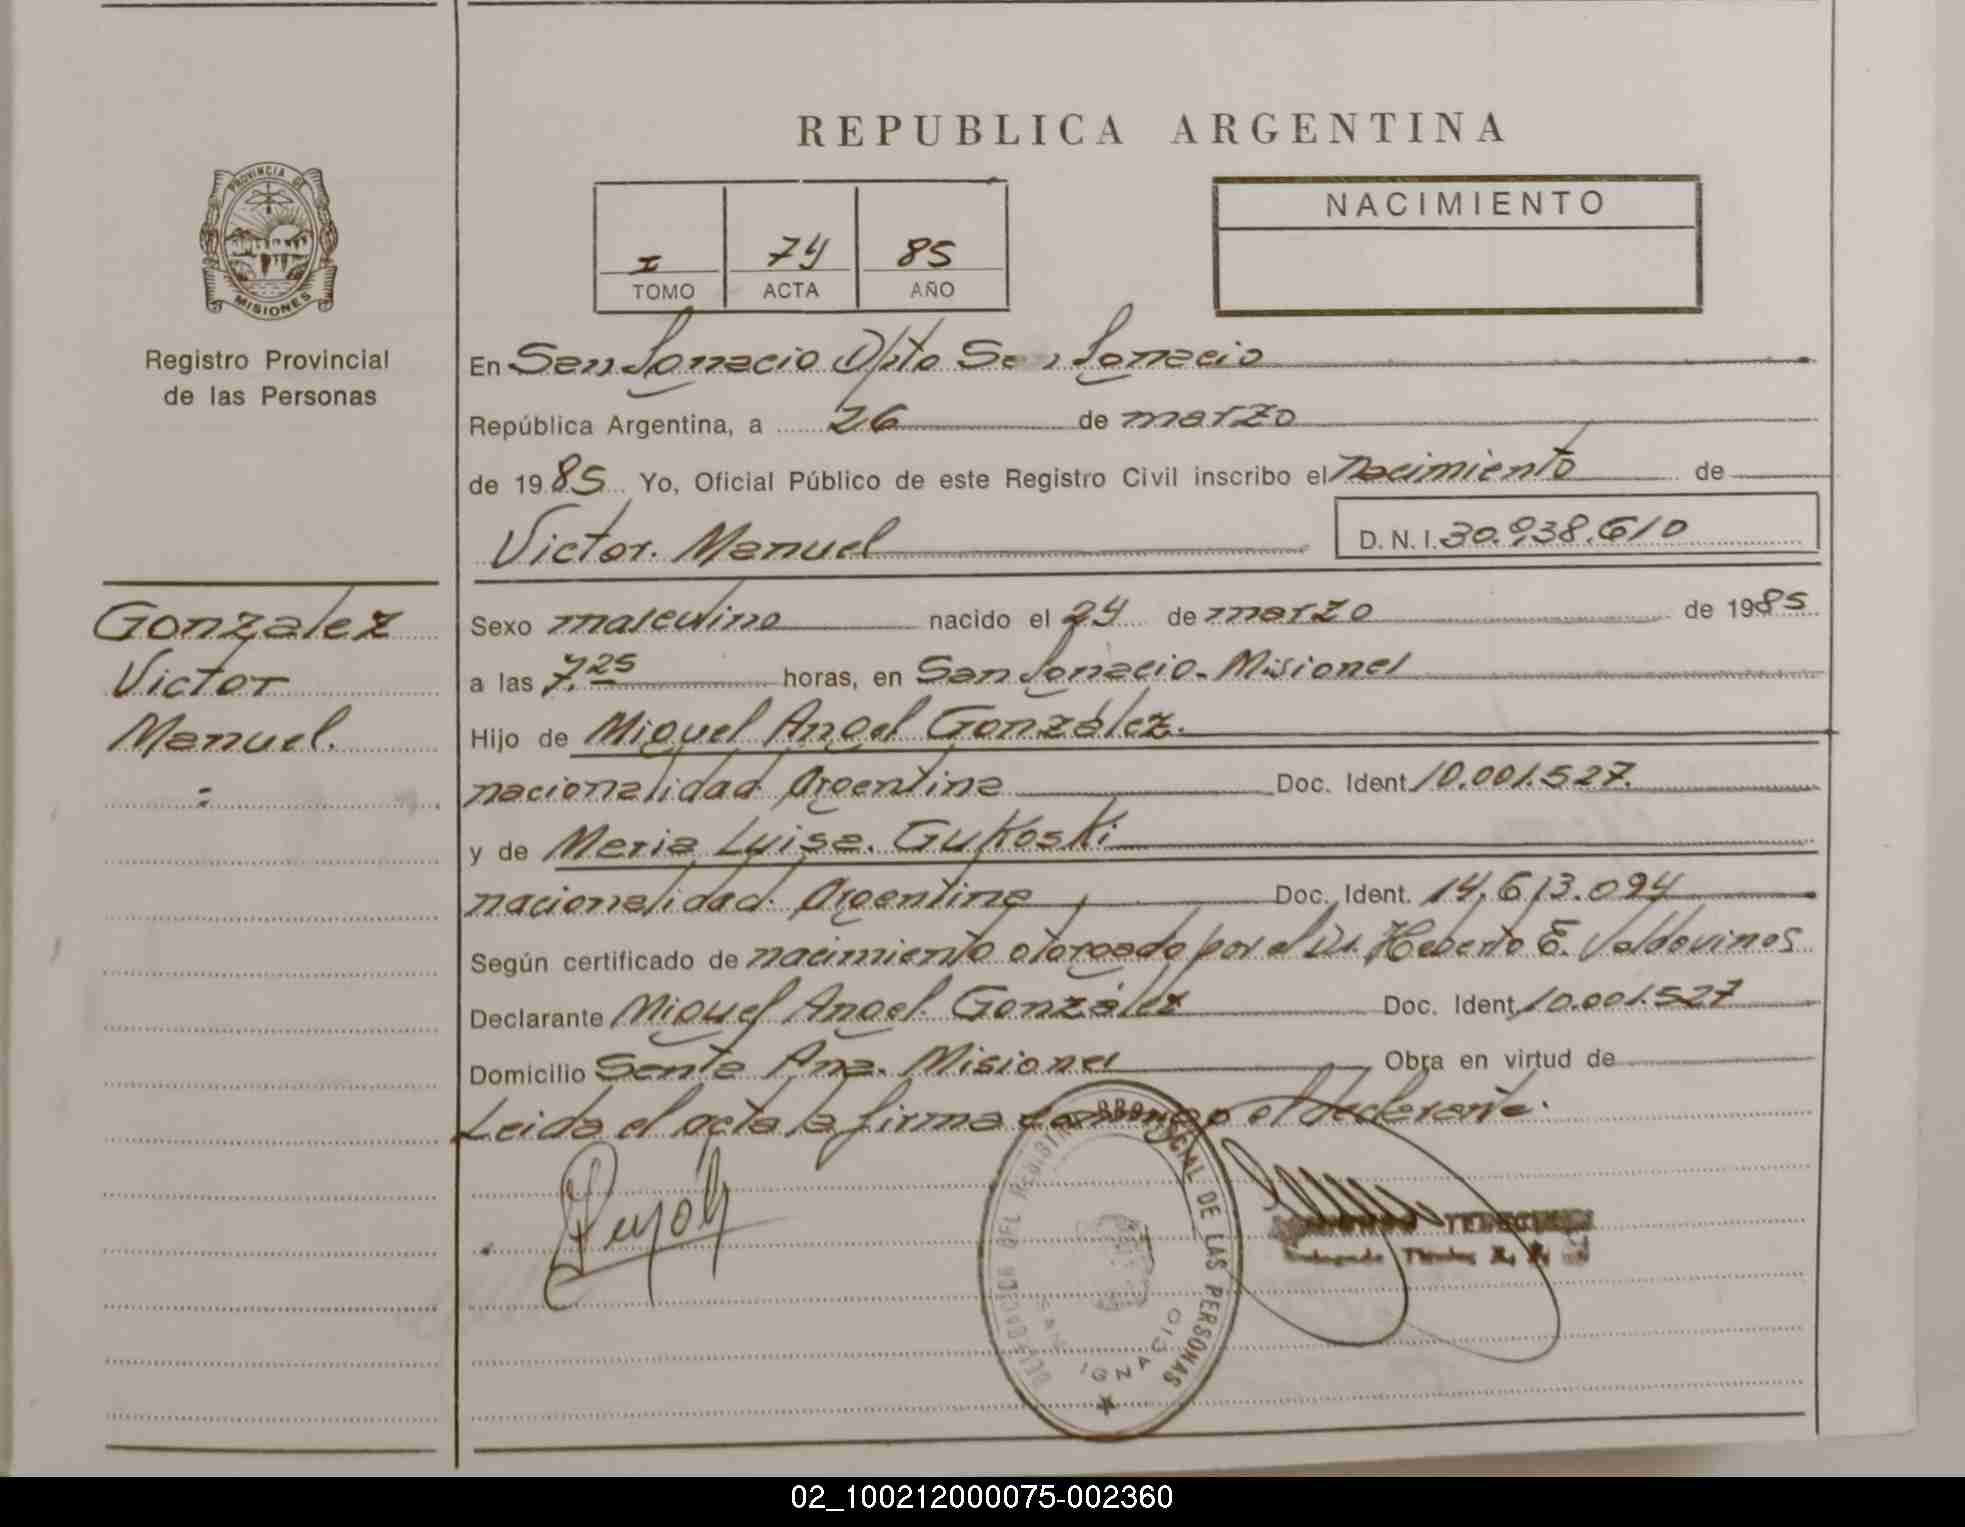 REPUBLICA ARGENTINA
PROVINCIA DE
MISIONES
Registro Provincial
de las Personas
I 74 85
TOMO ACTA AÑO
NACIMIENTO
En San Ignacio Dpto San Ignacio
República Argentina, a 26 de marzo
de 1985 Yo, Oficial Público de este Registro Civil inscribo el Nacimiento de
Victor. Manuel D. N. I. 30.938.610
Gonzalez
Victor
Manuel.
Sexo masculino nacido el 24 de marzo de 1985
a las 7.25 horas, en San Ignacio. Misiones
Hijo de Miguel Angel González.
nacionalidad Argentina Doc. Ident. 10.001.527.
y de Maria Luisa. Gukoski
nacionalidad. Argentina Doc. Ident. 14.613.094
Según certificado de nacimiento otorgado por el Dr. Heberto E. Valdovinos
Declarante Miguel Angel. González Doc. Ident 10.001.527
Domicilio Santa Ana. Misiones Obra en virtud de
Leida el acta la firma conmigo el declarante.
DELEGACION DEL REGISTRO PROVINCIAL DE LAS PERSONAS
SAN IGNACIO
02_100212000075-002360